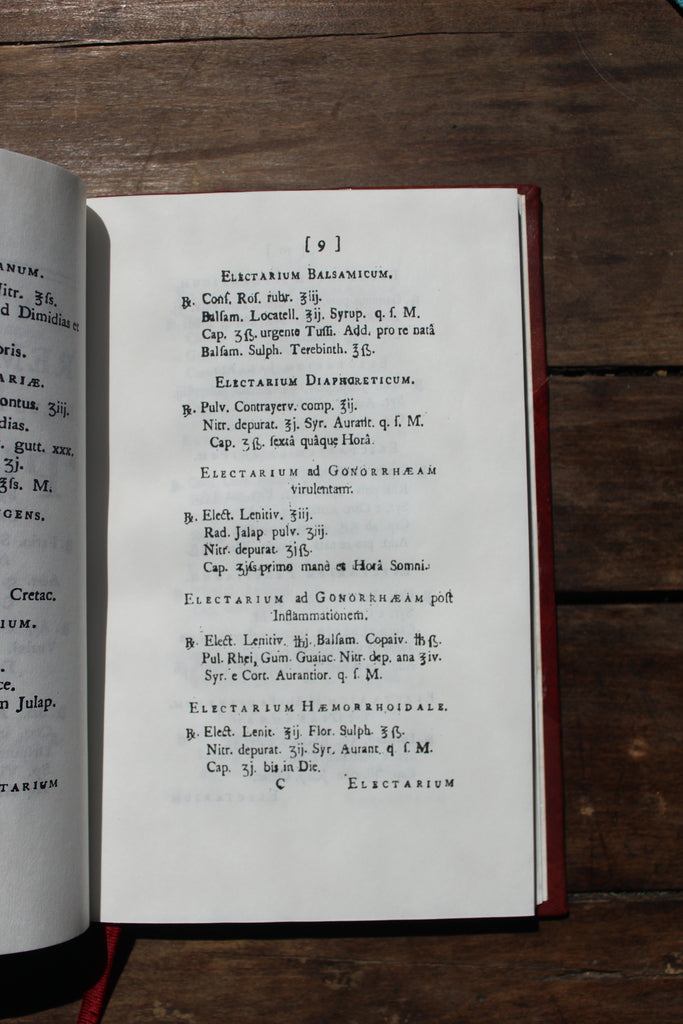 ANUM.
Nitr. ʒſs.
d Dimidias et
oris.
ARIÆ.
ontus. ʒiij.
dias.
. gutt. xxx.
ʒj.
ʒſs. M.
GENS.
Cretac.
IUM.
ce.
n Julap.
TARIUM
[ 9 ]
ELECTARIUM BALSAMICUM.
℞. Conſ. Roſ. rubr. ℥iij.
Balſam. Locatell. ℥ij. Syrup. q. ſ. M.
Cap. ʒß. urgente Tuſſi. Add. pro re natâ
Balſam. Sulph. Terebinth. ℥ß.
ELECTARIUM DIAPHORETICUM.
℞. Pulv. Contrayerv. comp. ℥ij.
Nitr. depurat. ℥j. Syr. Aurant. q. ſ. M.
Cap. ʒß. ſextâ quâque Horâ.
ELECTARIUM ad GONORRHÆAM
virulentam.
℞. Elect. Lenitiv. ℥iij.
Rad. Jalap pulv. ʒiij.
Nitr. depurat. ʒjß.
Cap. ʒjſs primo mane et Horâ Somni.
ELECTARIUM ad GONORRHÆAM poſt
Inflammationem.
℞. Elect. Lenitiv. ℔j. Balſam. Copaiv. ℔ß.
Pul. Rhei, Gum. Guaiac. Nitr. dep. ana ℥iv.
Syr. e Cort. Aurantior. q. ſ. M.
ELECTARIUM HÆMORRHOIDALE.
℞. Elect. Lenit. ℥ij. Flor. Sulph. ℥ß.
Nitr. depurat. ʒij. Syr. Aurant. q. ſ. M.
Cap. ʒj. bis in Die.
C ELECTARIUM